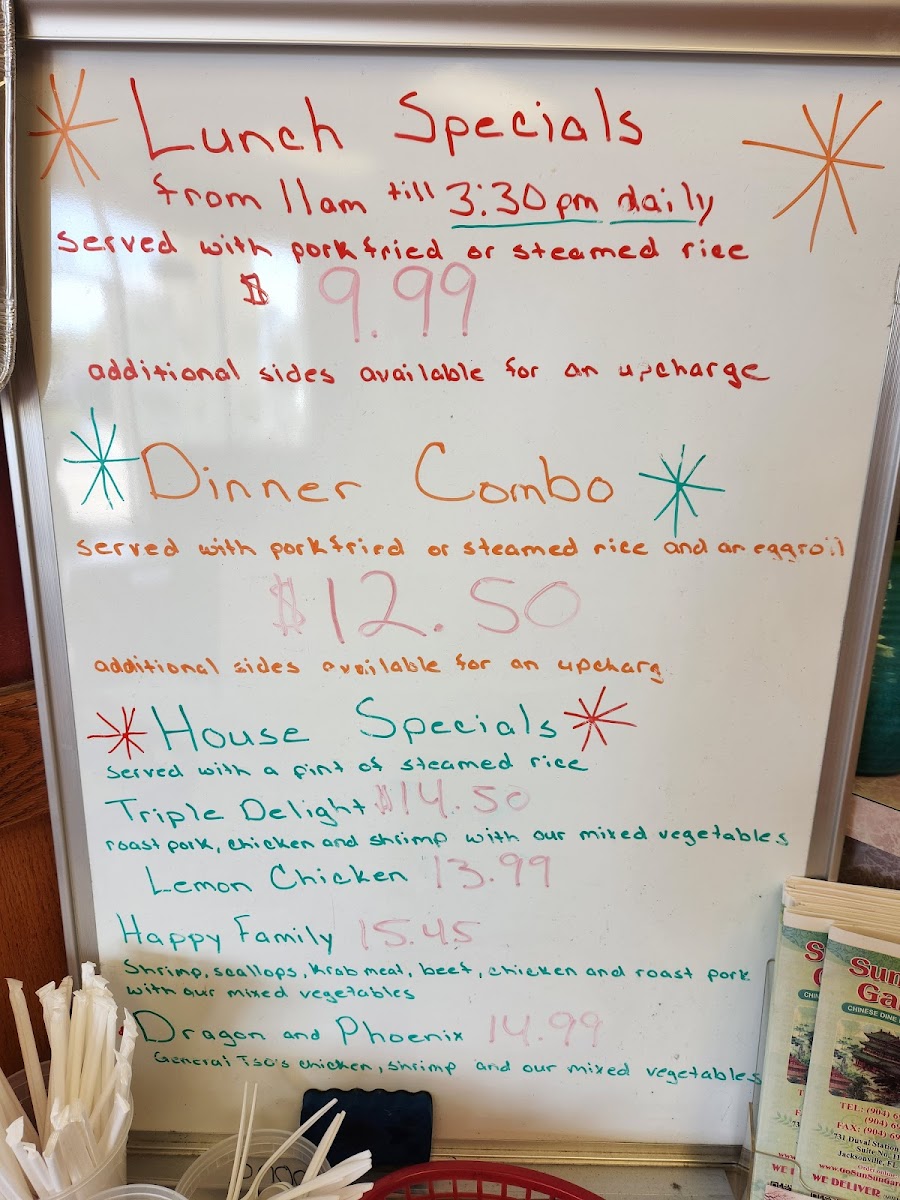 Lunch Specials
from 11am till 3:30pm daily
served with pork fried or steamed rice
$ 9.99
additional sides available for an upcharge
Dinner Combo
served with pork fried or steamed rice and an eggroll
$12.50
additional sides available for an upcharg
House Specials
served with a pint of steamed rice
Triple Delight $14.50
roast pork, chicken and shrimp with our mixed vegetables
Lemon Chicken 13.99
Happy Family 15.45
Shrimp, scallops, Krab meat, beef, chicken and roast pork
with our mixed vegetables
Dragon and Phoenix 14.99
General Tso's chicken, shrimp and our mixed vegetables
Sun
Ga
CHINESE DINE
TEL: (904) 6
(904) 6
FAX: (904)
731 Duval Station
Suite No. 11
Jacksonville, FL
www.GoSunSunGar
WE DELIVER
WE